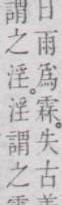 日雨爲霖。失古
謂之淫。淫謂之